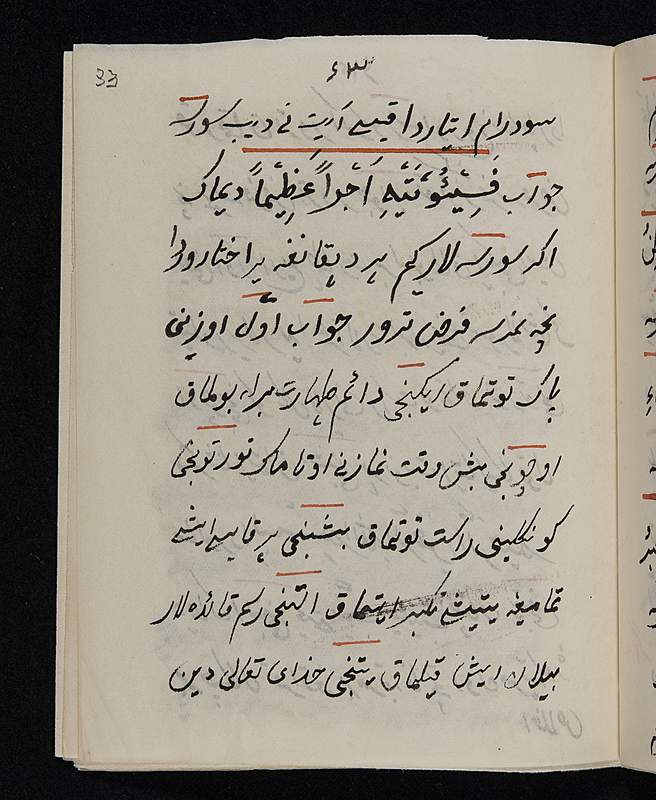 33
۶۳
سودرام ایتاردا قیسی آیت نی دیب سورسه
جواب فَسَيُؤْتِيهِ أَجْراً عَظِيْماً دیماک
اکر سورسه لار کیم هر دهقانغه یر اختاروردا
نچه نمرسه فرض ترور جواب اوّل اوزینی
پاک توتماق ایکنجی دائم طهارت برله بولماق
اوچونجی بش وقت نمازنی اوتاماک تورتونجی
کونکلینی راست توتماق بشنجی هر قایسی ایشی
تمامیغه یتیشی تکبیر ایتماق التنجی رسم قائده لار
بیلان ایش قیلماق یتنجی خدای تعالی دین
اخلاص